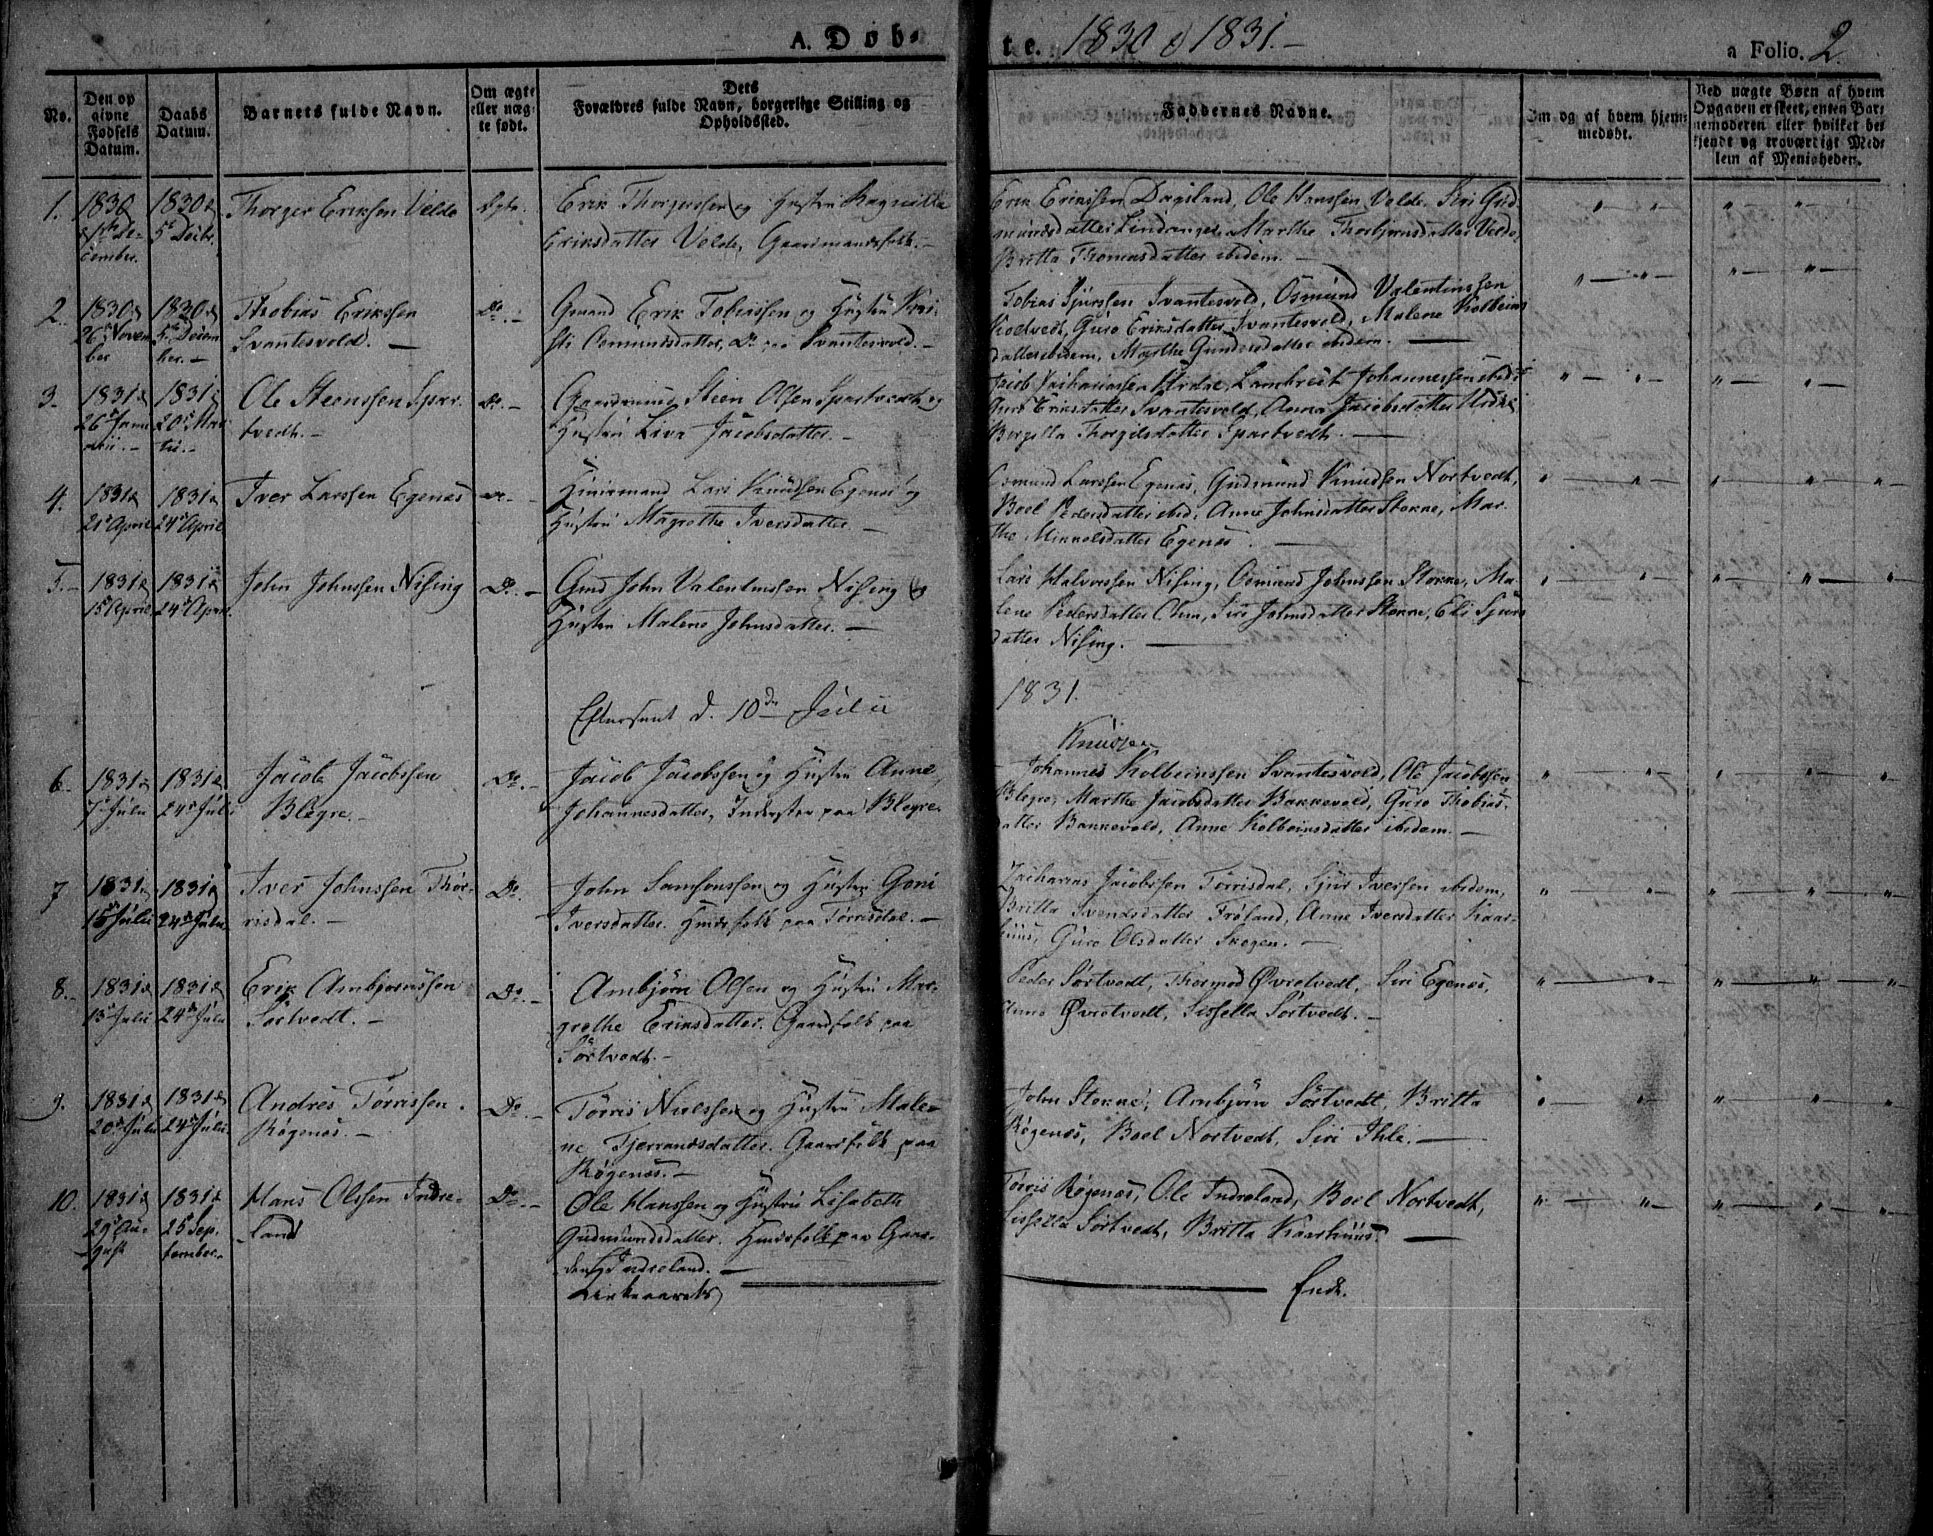 A. Døb-
te. 1830 & 1831.-
a Folio. 2.
No.
Den opgivne Fødsels Datum.
Daabs Datum.
Barnets fulde Navn.
Om ægte eller uægte født.
Dets Forældres fulde Navn, borgerlige Stilling og Opholdssted.
Faddernes Navne.
Om og af hvem hjemmedøbt.
Ved uægte Børn af hvem Opgaven er skeet, enten Barnemoderen eller hvilket bekjendt og troværdigt Medlem af Menigheden.
1.
1830
cember.
1830
5 Decbr.
Thorger Eriksen Velde
Ægte.
Erik Thorgersen og Hustru Ragnilla
Eriksdatter Velde, Gaardmandsfolk.-
Erik Erikssen Dagsland, Ole Hanssen Velde. Siri Gud
mundsdatter Lindanger, Marthe Thorbjørnsdatter Velde,
Britta Thomasdatter ibidem.-
2.
1830
26 Novem
ber
1830
5 Decem
ber.-
Thobias Erikssen
Svantesvold.-
Do.-
Gmand Erik Tobiassen og Hustru Kri-
sti Osmundsdatter, Do. paa Svantesvold.-
Tobias Sjurssen Svantesvold, Osmund Valentinssen
Koltvedt, Guro Eriksdatter Svantesvold, Malene Kolbeins
datter ibidem, Marthe Gundersdatter ibidem.-
3.
1831
26 Janu
arii.-
1831
20 Mar
tii.-
Ole Steenssen Spar-
tvedt.-
Do.-
Gaardmand Steen Olsen Spartvedt og
Hustru Liva Jacobsdatter.-
Jacob Zachariassen Urdal, Lambrect Johannessen ibid.
Guro Eriksdatter Svantesvold, Anna Jacobsdatter Urdal
Bergella Thorgilsdatter Spartvedt.-
4.
1831
21 April
1831
24 April
Iver Larssen Egenæs
Do.-
Huusmand Lars Knudsen Egenæs og
Hustru Magrethe Iversdatter.-
Osmund Larssen Egenæs, Gudmund Knudsen Nortvedt,
Boel Pedersdatter ibid, Anne Johnsdatter Stokne, Mar-
the Mikkelsdatter Egenæs.-
5.-
1831
15 April
1831
24 April
John Johnssen Nising
Do.-
Gmd John Valentinssen Nising og
Hustru Malene Johnsdatter.-
Lars Halvorssen Nising, Osmund Johnssen Stokne, Ma-
lene Pedersdatter Ohm, Siri Johnsdatter Stokne, Eli Sjurs
datter Nising.-
Eftersendt d. 10de Julii
1831.
Knudsen
6.
1831
7 Julii
1831
24 Julii
Jacob Jacobssen
Bløgre.-
Do.-
Jacob Jacobssen og Hustru Anne
Johannesdatter, Inderster paa Bløgre.
Johannes Kolbeinssen Svantesvold, Ole Jacobssen
Bløgre, Marthe Jacobsdatter Bakkevold, Guro Thobias-
datter Bakkevold, Anne Kolbeinsdatter ibidem.-
7
1831
15 Julii
1831
24 Julii
Iver Johnssen Thør-
risdal.-
Do.
John Samsonssen og Hustru Goni
Iversdatter. Huusfolk paa Tørrisdal.-
Zacharias Jacobssen Tørrisdal, Sjur Iversen ibidem,
Britta Svendsdatter Frøland, Anne Iversdatter Kaar-
huus, Guro Olsdatter Skogen.-
8.-
1831
13 Julii
1831
24 Julii
Erik Ambjørnssen
Sørtvedt.-
Do.-
Ambjørn Olsen og Hustru Mar-
grethe Eriksdatter. Gaardfolk paa
Sørtvedt.-
Peder Sørtvedt, Thormod Øvretvedt, Siri Egenæs,
Anna Øvretvedt, Sissella Sørtvedt.-
9.
1831
20 Julii
1831
24 Julii
Andres Tørrissen
Røgenæs.-
Do.-
Tørris Nielssen og Hustru Male-
ne Tjerrandsdatter. Gaardfolk paa
Røgenæs.-
John Stokne, Ambjørn Sørtvedt, Britta
Røgenæs, Boel Nortvedt, Siri Ihle.-
10.
1831
29 Au-
gust
1831
25 Sep-
tember.
Hans Olssen Indre-
land
Do.-
Ole Hanssen og Hustru Lisabeth
Gudmundsdatter. Huusfolk paa Gaar-
den Indreland.-
Tørris Røgenæs, Ole Indreland, Boel Nortvedt,
Sissella Sørtvedt, Britta Kaarhuus.-
Kirkeaarets
Ende.